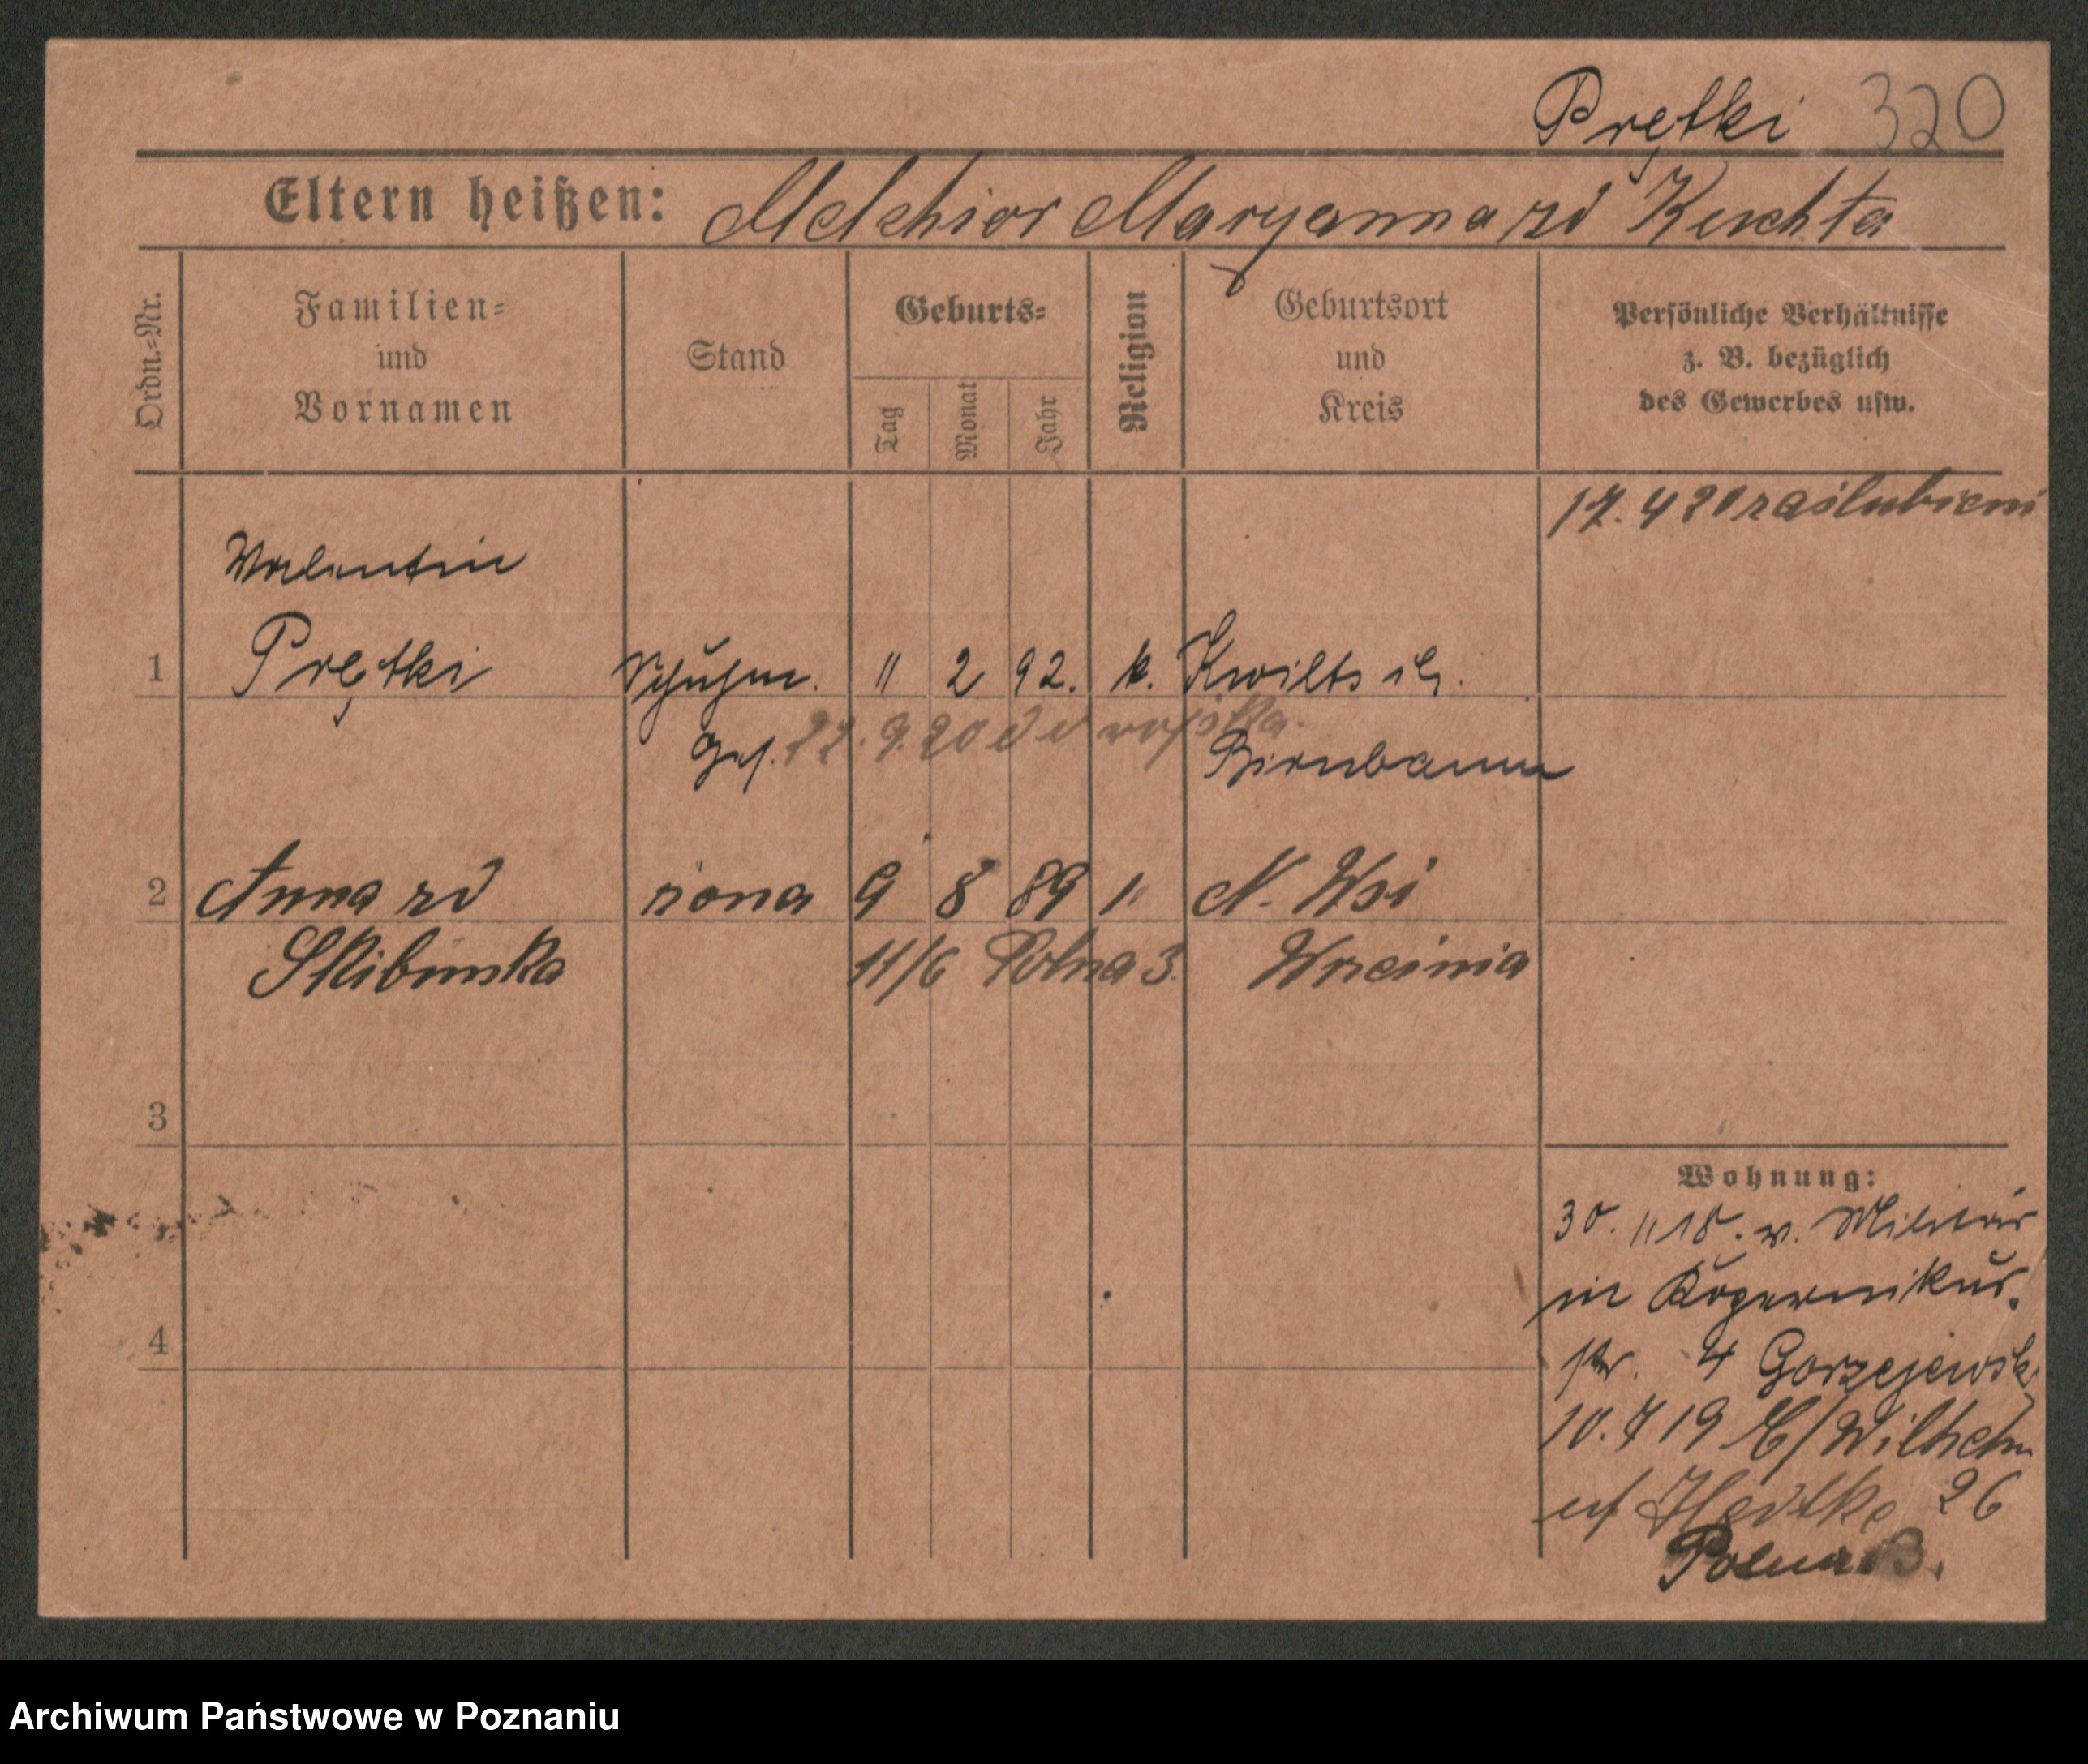 Prętki 320
Eltern heißen: Melchior Maryanna zd Kuchta
Ordn.-Nr.
Familien-
und
Vornamen
Stand
Geburts-
Tag
Monat
Jahr
Religion
Geburtsort
und
Kreis
Persönliche Verhältnisse
z. B. bezüglich
des Gewerbes usw.
17. 4 20 zaślubieni
Valentin
1 Prętki Schuhm. 11 2 92. k. Kwiltsch.
Ges. 22. 9. 20 do wojska
Birnbaum
2 Anna zd żona 9 8 89 " N. Wsi
Skibinska 11/6 Polna 3. Września
3
Wohnung:
30. 11 18. v. Militär
in Kopernikus.
str. 4 Gorzejewski
4
10. 7 19 b/ Wilhelm
Hedtke 26
Polna 3.
Archiwum Państwowe w Poznaniu